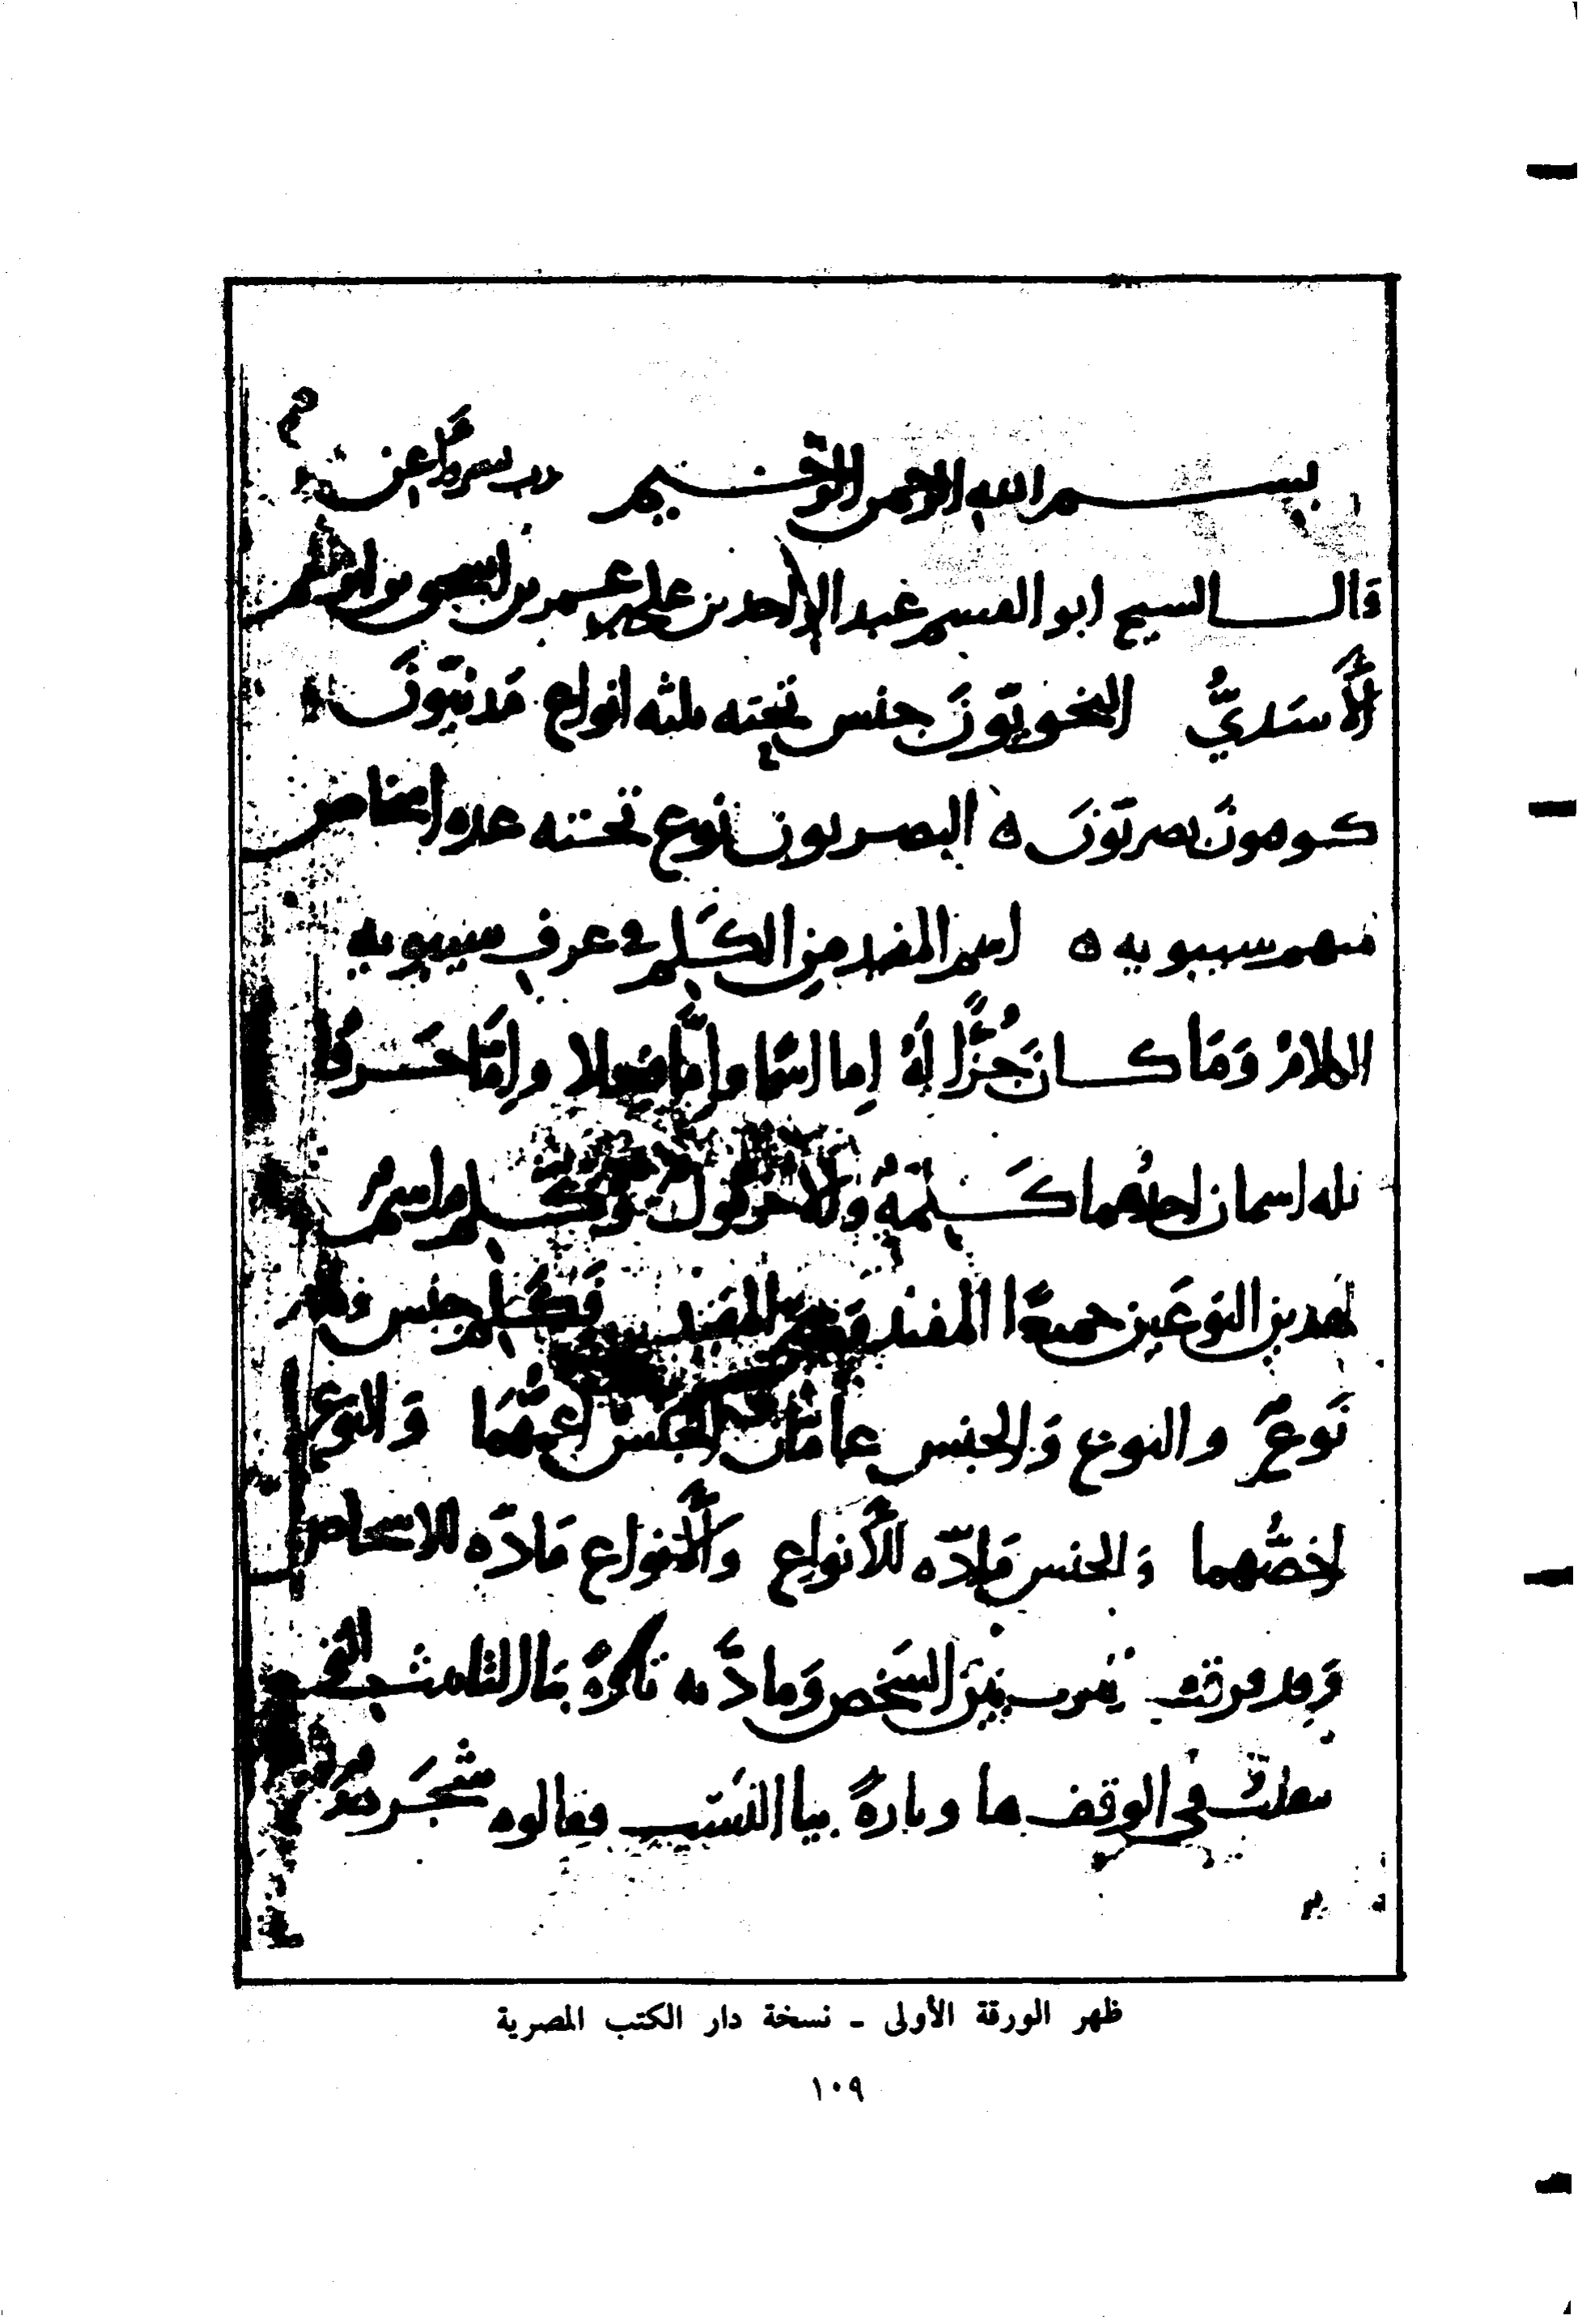 بسم الله الرحمن الرحيم رب يسر
قال الشيخ ابو القسم عبد الواحد بن علي بن عمر بن اسحق بن ابرهيم
الأسَديُّ النحويّونَ جنس تحته ثلثه انواع مَدنيّونَ
كوفيونَ بصريّونَ ه البصريون نوع تحته عده اشخاص
منهم سيبويه ه اسم المفيد مِن الكَلم في عرف سيبويه
الكلامُ وَمَا كان جُزًا لَهُ اِما اسمًا واِمَّا فعلا واِمَّا حَرفًا
فله اسمان احدُهما كَلِمَةٌ وَالآخر كَلم واسمُ
هذين النوعَين جميعًا المفيد المفيد فَكَلم جنس
نَوعٌ والنوع وَالجنس عامّان الجنس اعمّهُمَا وَالنوع
اخصُّهما وَالجنس مَادّه للأنواع وَالأنواع مَادّه للاشخاص
وَقد فرقت العرب بَيْنَ الشَخص وَمادّته تارةً بتا التانيث التي
جعلت في الوقف ها وتارةً بيا النَسَب فقالوا شجَر
ظهر الورقة الأولى - نسخة دار الكتب المصرية
١٠٩